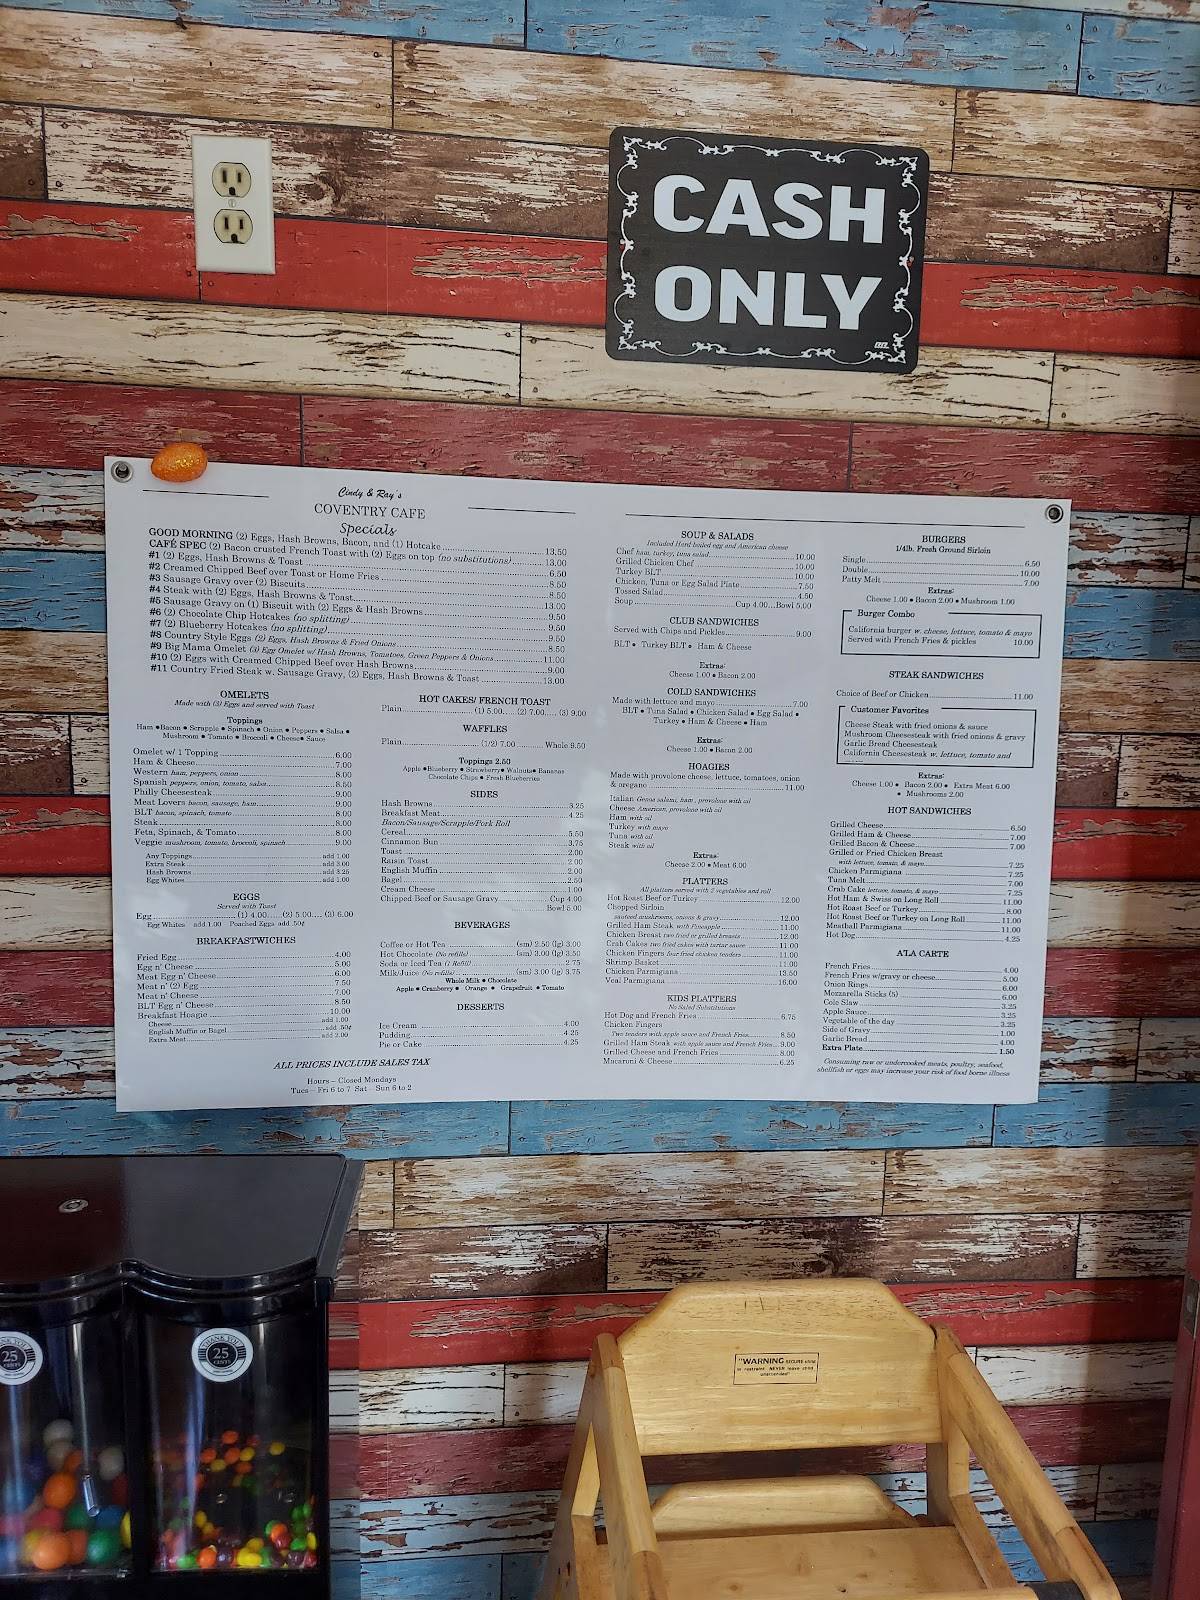 CASH
ONLY
Cindy & Ray's
COVENTRY CAFE
Specials
GOOD MORNING (2) Eggs, Hash Browns, Bacon, and (1) Hotcake 13.50
CAFÉ SPEC (2) Bacon crusted French Toast with (2) Eggs on top (no substitutions) 13.00
#1 (2) Eggs, Hash Browns & Toast 6.50
#2 Creamed Chipped Beef over Toast or Home Fries 8.50
#3 Sausage Gravy over (2) Biscuits 8.50
#4 Steak with (2) Eggs, Hash Browns & Toast 13.00
#5 Sausage Gravy on (1) Biscuit with (2) Eggs & Hash Browns 9.50
#6 (2) Chocolate Chip Hotcakes (no splitting) 9.50
#7 (2) Blueberry Hotcakes (no splitting) 9.50
#8 Country Style Eggs (2) Eggs, Hash Browns & Fried Onions 8.50
#9 Big Mama Omelet (3) Egg Omelet w/ Hash Browns, Tomatoes, Green Peppers & Onions 11.00
#10 (2) Eggs with Creamed Chipped Beef over Hash Browns 9.00
#11 Country Fried Steak w. Sausage Gravy, (2) Eggs, Hash Browns & Toast 13.00
OMELETS
Made with (3) Eggs and served with Toast
Toppings
Ham ● Bacon ● Scrapple ● Spinach ● Onion ● Peppers ● Salsa ●
Mushroom ● Tomato ● Broccoli ● Cheese ● Sauce
Omelet w/ 1 Topping 6.00
Ham & Cheese 7.00
Western ham, peppers, onion 8.00
Spanish peppers, onion, tomato, salsa 8.50
Philly Cheesesteak 9.00
Meat Lovers bacon, sausage, ham 9.00
BLT bacon, spinach, tomato 8.00
Steak 8.00
Feta, Spinach, & Tomato 8.00
Veggie mushroom, tomato, broccoli, spinach 9.00
Any Toppings add 1.00
Extra Steak add 3.00
Hash Browns add 3.25
Egg Whites add 1.00
EGGS
Served with Toast
Egg (1) 4.00 (2) 5.00 (3) 6.00
Egg Whites add 1.00 Poached Eggs add .50¢
BREAKFASTWICHES
Fried Egg 4.00
Egg n' Cheese 5.00
Meat Egg n' Cheese 6.00
Meat n' (2) Egg 7.50
Meat n' Cheese 7.00
BLT Egg n' Cheese 8.50
Breakfast Hoagie 10.00
Cheese add 1.00
English Muffin or Bagel add .50¢
Extra Meat add 2.00
HOT CAKES/ FRENCH TOAST
Plain (1) 5.00 (2) 7.00 (3) 9.00
WAFFLES
Plain (1/2) 7.00 Whole 9.50
Toppings 2.50
Apple ● Blueberry ● Strawberry ● Walnuts ● Bananas
Chocolate Chips ● Fresh Blueberries
SIDES
Hash Browns 3.25
Breakfast Meat 4.25
Bacon/Sausage/Scrapple/Pork Roll
Cereal 5.50
Cinnamon Bun 3.75
Toast 2.00
Raisin Toast 2.00
English Muffin 2.00
Bagel 2.50
Cream Cheese 1.00
Chipped Beef or Sausage Gravy Cup 4.00
Bowl 5.00
BEVERAGES
Coffee or Hot Tea (sm) 2.50 (lg) 3.00
Hot Chocolate (No refills) (sm) 3.00 (lg) 3.50
Soda or Iced Tea (1 Refill) 2.75
Milk/Juice (No refills) (sm) 3.00 (lg) 3.75
Whole Milk ● Chocolate
Apple ● Cranberry ● Orange ● Grapefruit ● Tomato
DESSERTS
Ice Cream 4.00
Pudding 4.25
Pie or Cake 4.25
ALL PRICES INCLUDE SALES TAX
Hours – Closed Mondays
Tues – Fri 6 to 7 Sat – Sun 6 to 2
SOUP & SALADS
Included Hard boiled egg and American cheese
Chef ham, turkey, tuna salad 10.00
Grilled Chicken Chef 10.00
Turkey BLT 10.00
Chicken, Tuna or Egg Salad Plate 7.50
Tossed Salad 4.50
Soup Cup 4.00 Bowl 5.00
CLUB SANDWICHES
Served with Chips and Pickles 9.00
BLT ● Turkey BLT ● Ham & Cheese
Extras:
Cheese 1.00 ● Bacon 2.00
COLD SANDWICHES
Made with lettuce and mayo 7.00
BLT ● Tuna Salad ● Chicken Salad ● Egg Salad ●
Turkey ● Ham & Cheese ● Ham
Extras:
Cheese 1.00 ● Bacon 2.00
HOAGIES
Made with provolone cheese, lettuce, tomatoes, onion
& oregano 11.00
Italian Genoa salami, ham, provolone with oil
Cheese American, provolone with oil
Ham with oil
Turkey with mayo
Tuna with oil
Steak with oil
Extras:
Cheese 2.00 ● Meat 6.00
PLATTERS
All platters served with 2 vegetables and roll
Hot Roast Beef or Turkey 12.00
Chopped Sirloin
sauteed mushrooms, onions & gravy 12.00
Grilled Ham Steak with Pineapple 11.00
Chicken Breast two fried or grilled breasts 12.00
Crab Cakes two fried cakes with tartar sauce 11.00
Chicken Fingers four fried chicken tenders 11.00
Shrimp Basket 11.00
Chicken Parmigiana 13.50
Veal Parmigiana 16.00
KIDS PLATTERS
No Salad Substitutions
Hot Dog and French Fries 6.75
Chicken Fingers
Two tenders with apple sauce and French Fries 8.50
Grilled Ham Steak with apple sauce and French Fries 9.00
Grilled Cheese and French Fries 8.00
Macaroni & Cheese 6.25
BURGERS
1/4lb. Fresh Ground Sirloin
Single 6.50
Double 10.00
Patty Melt 7.00
Extras:
Cheese 1.00 ● Bacon 2.00 ● Mushroom 1.00
Burger Combo
California burger w. cheese, lettuce, tomato & mayo
Served with French Fries & pickles 10.00
STEAK SANDWICHES
Choice of Beef or Chicken 11.00
Customer Favorites
Cheese Steak with fried onions & sauce
Mushroom Cheesesteak with fried onions & gravy
Garlic Bread Cheesesteak
California Cheesesteak w. lettuce, tomato and
Extras:
Cheese 1.00 ● Bacon 2.00 ● Extra Meat 6.00
● Mushrooms 2.00
HOT SANDWICHES
Grilled Cheese 6.50
Grilled Ham & Cheese 7.00
Grilled Bacon & Cheese 7.00
Grilled or Fried Chicken Breast
with lettuce, tomato, & mayo 7.25
Chicken Parmigiana 7.25
Tuna Melt 7.00
Crab Cake lettuce, tomato, & mayo 7.25
Hot Ham & Swiss on Long Roll 11.00
Hot Roast Beef or Turkey 8.00
Hot Roast Beef or Turkey on Long Roll 11.00
Meatball Parmigiana 11.00
Hot Dog 4.25
A'LA CARTE
French Fries 4.00
French Fries w/gravy or cheese 5.00
Onion Rings 6.00
Mozzarella Sticks (5) 6.00
Cole Slaw 3.25
Apple Sauce 3.25
Vegetable of the day 3.25
Side of Gravy 1.00
Garlic Bread 4.00
Extra Plate 1.50
Consuming raw or undercooked meats, poultry, seafood,
shellfish or eggs may increase your risk of food borne illness
THANK YOU
25
CENTS
THANK YOU
25
CENTS
"WARNING SECURE child
in restraint NEVER leave child
unattended"